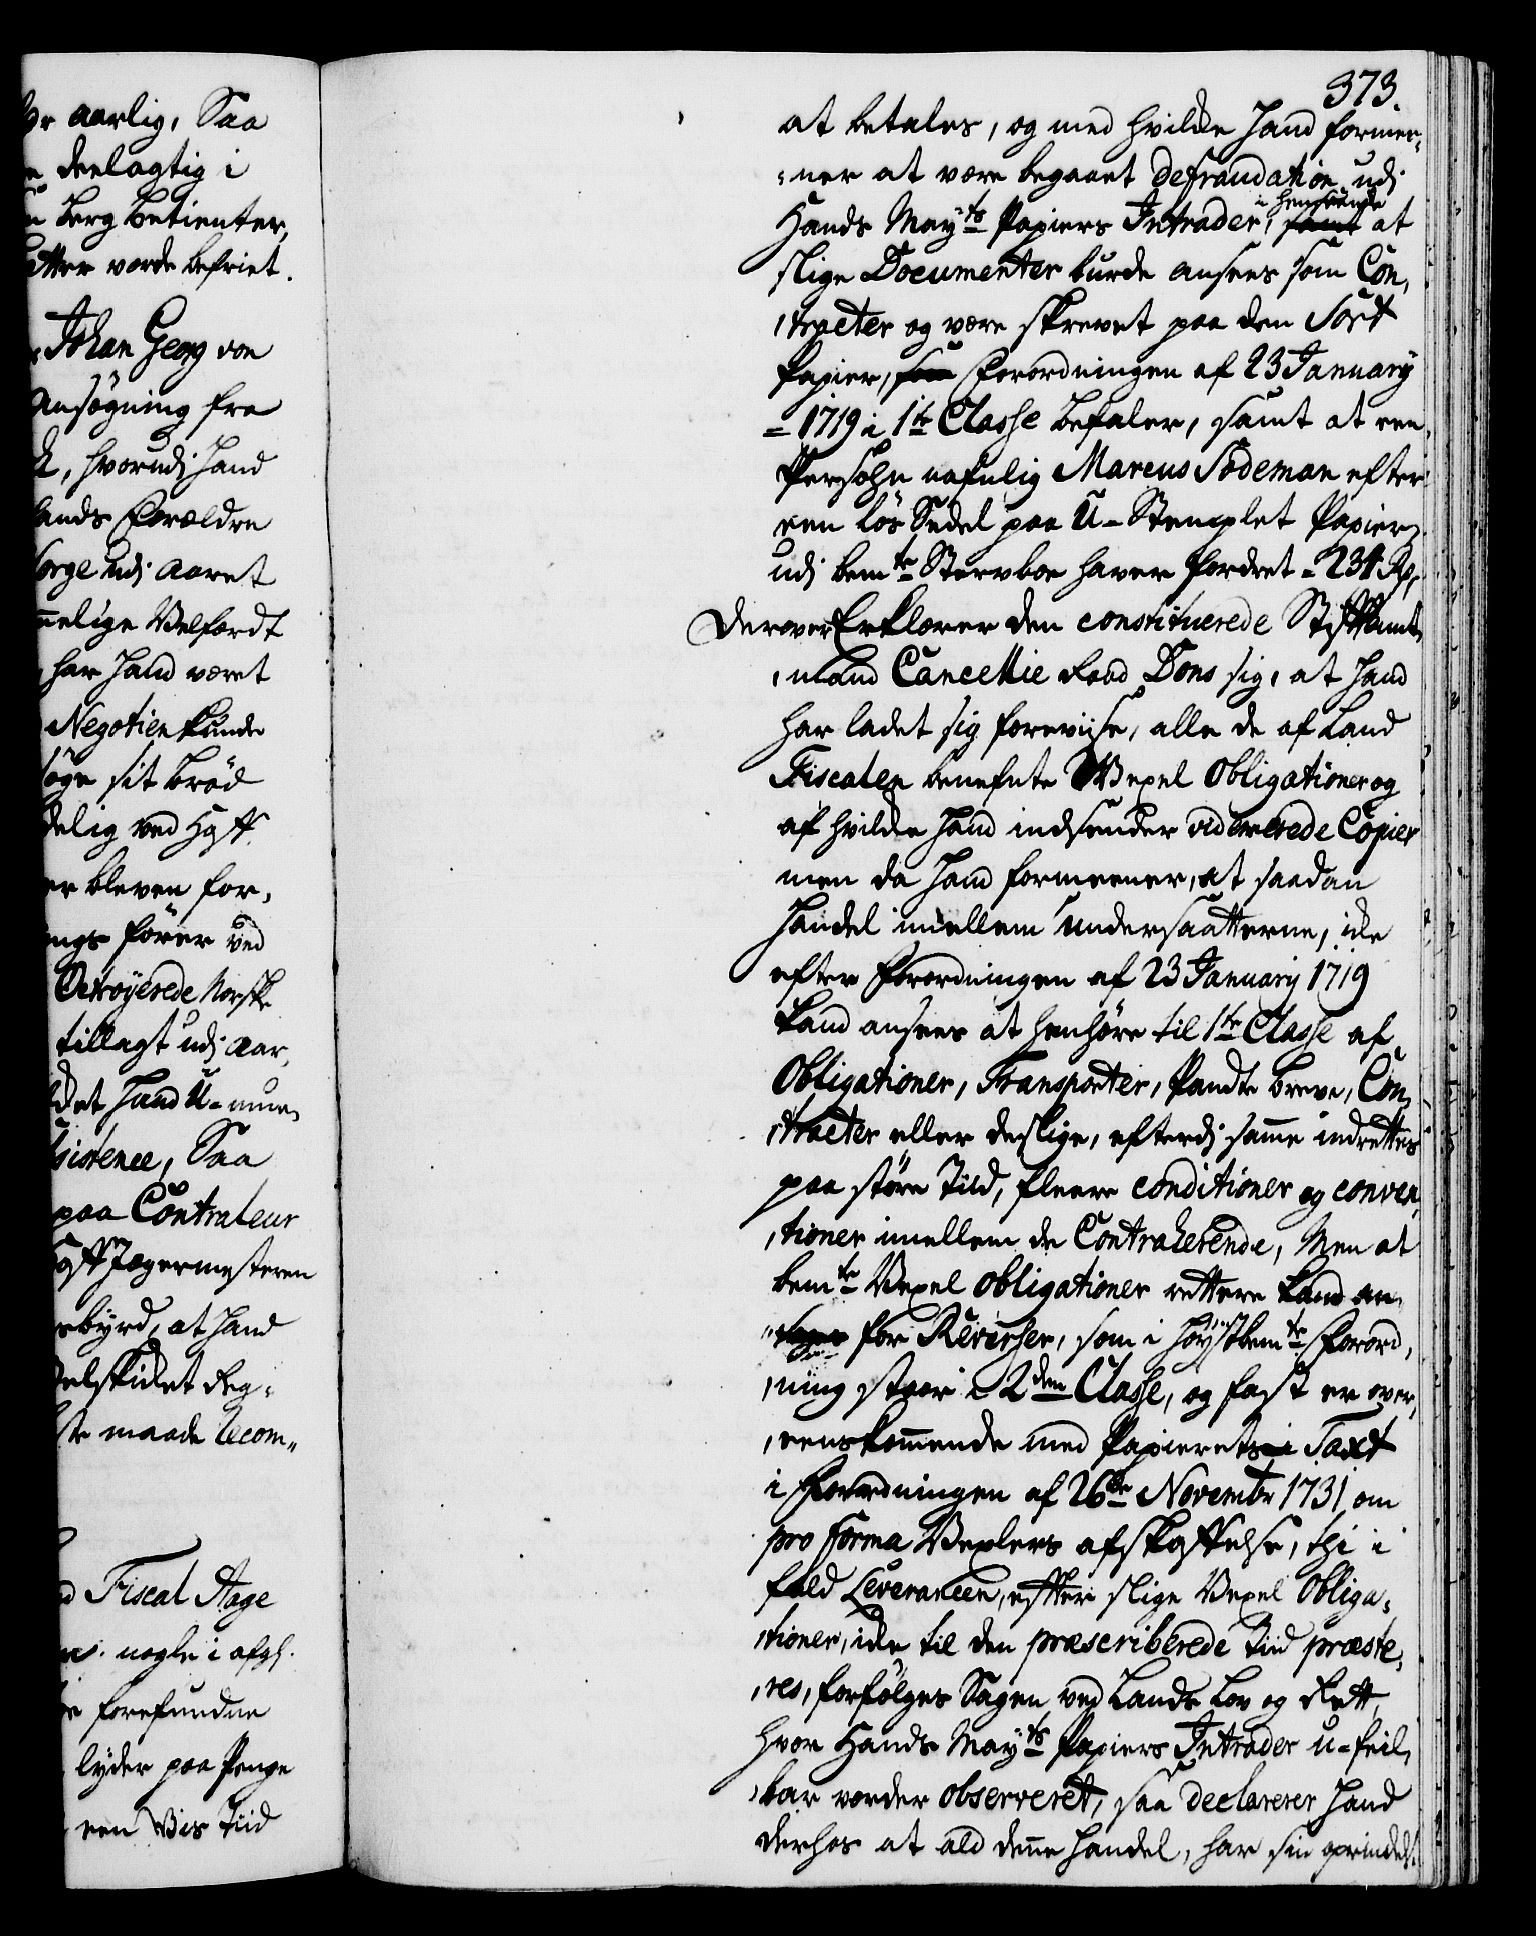 or aarlig, Saa
deelagtig i
Berg Betienter,
atter vorde befriet.
Johan Georg von
Ansøgning fra
hvorudj Hand
Hands Forældre
Norge udj Aaret
melige Velfærdt
har Hand været
Negotien kunde
søge sit Brød
delig ved Hoff
er bleven for,
ings fører ved
Octroyerede Norske
tillagt udj Aar,
det Hand U-mue,
sistence, Saa
paa Contraleur
Hoff Jægermesteren
byrd, at Hand
Velskicket Reg,
ste maade Recom,,
Fiscal Aage
nogle i afg.
forefundne
lyder paa Penge
een Vis Tiid
373.
at betales, og med hvilcke Hand formee,
,ner at være begaaet defraudation udj
Hands Mayts Papiers Intrader, i henseende samt at
slige Documenter burde ansees som Con,
,tracter og være skrevet paa den Sort
Papier, som Forordningen af 23 January
= 1719 i 1te Classe befaler, samt at een
Persohn nafnlig Marcus Södeman efter
een løs Sedel paa U-Stemplet Papier
udj bemte Stervboe haver fordret = 234 Rd,
Derover Erklærer den constituerede Stiftamt,
,mand Cancellie Raad Dons sig, at Hand
har ladet sig foreviise, alle de af Land
Fiscalen benefnte Vexel Obligationer og
af hvilcke Hand indsender vidimerede Copier
men da Hand formeener, at saadan
Handel imellem Undersaatterne, icke
efter Forordningen af 23 January 1719
kand ansees at henhøre til 1te Classe af
Obligationer, Transporter, Pandte Breve, Con,
,tracter eller deslige, efterdj samme indrettes
paa større Tiid, fleere conditioner og conven,
,tioner imellem de Contraherende, Men at
bemte Vexel Obligationer rettere kand an,
,,tages for Reverser, som i Høystbemte Forord,
,ning staar i 2den Classe, og fast er over,
,eenskommende med Papierets i Taxt
i Forordningen af 26de Novembr 1731 om
pro forma Vexlers afskaffelse, thi i
fald Leverancen, efter slige Vexel Obliga,
,tioner, icke til den præscriberede Tiid præste,
,res, forfølges Sagen ved Lands Lov og Rett,
hvor Hands Mayts Papiers Intrader u-feil,
,bar vorder observeret, saa declarerer Hand
derhos at ald denne Handel, har sin oprindel,